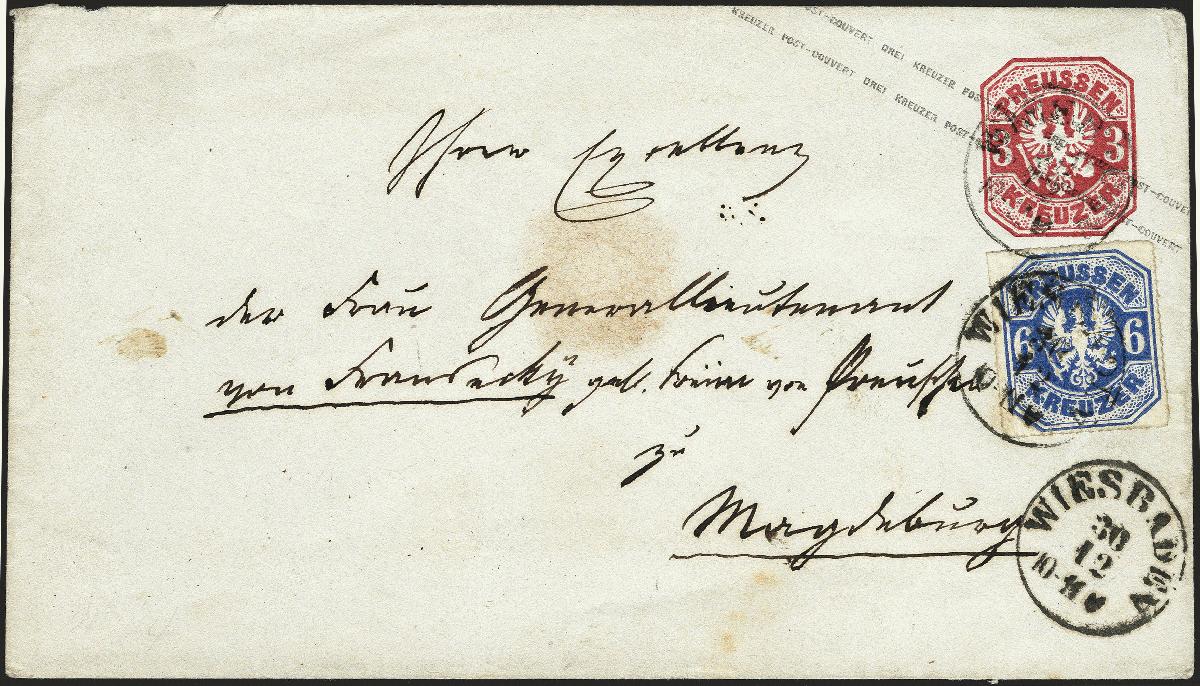 POST-COUVERT DREI KREUZER POST-COUVERT
KREUZER POST-COUVERT DREI KREUZER POST-COUVERT
PREUSSEN
3 3
KREUZER
Ihrer Excellenz
PREUSSEN
6 6
KREUZER
WIES
der Frau Generallieutenant
von Fransecky geb. von
zu
Magdeburg
WIESBADEN
30
12
10-11